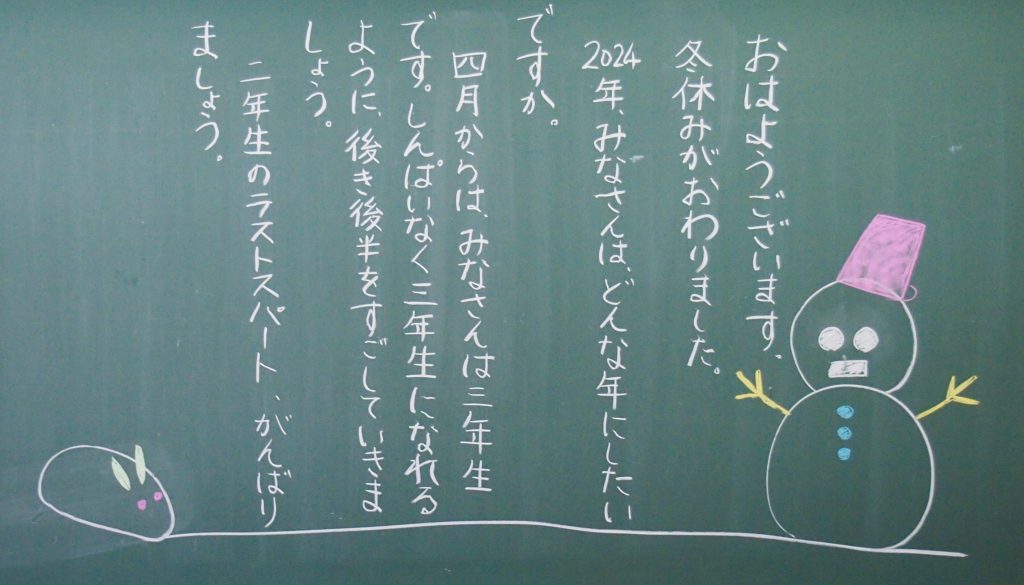 おはようございます。
冬休みがおわりました。
2024年、みなさんは、どんな年にしたい
ですか。
四月からは、みなさんは三年生
です。しんぱいなく三年生になれる
ように、後き後半をすごしていきま
しょう。
二年生のラストスパート、がんばり
ましょう。